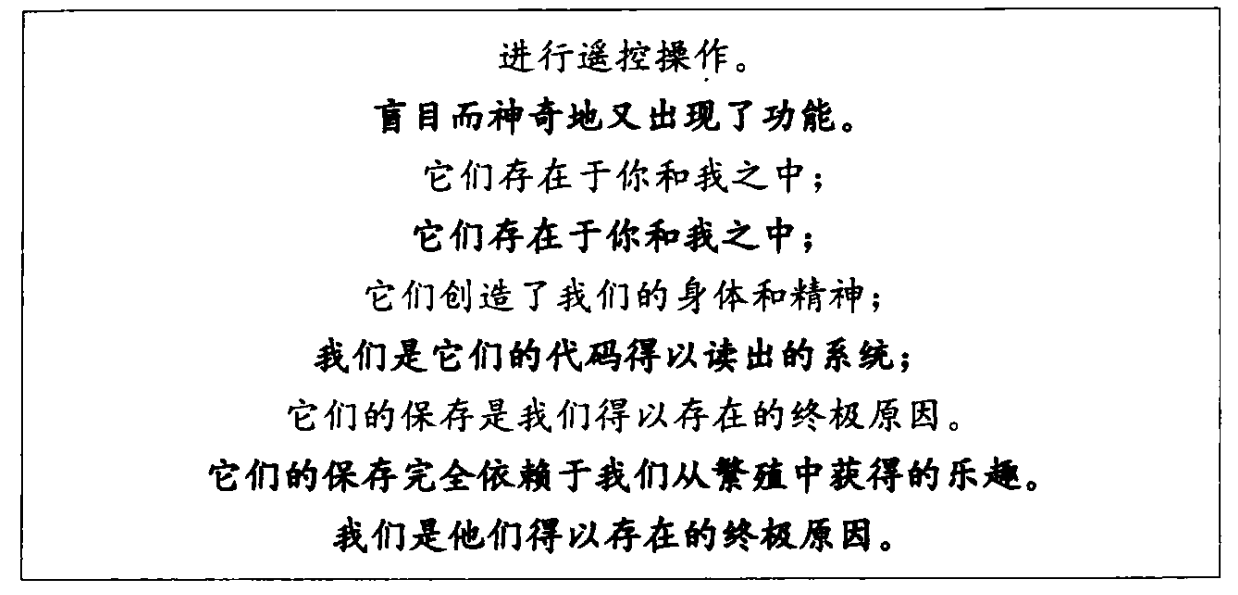 进行遥控操作。
盲目而神奇地又出现了功能。
它们存在于你和我之中；
它们存在于你和我之中；
它们创造了我们的身体和精神；
我们是它们的代码得以读出的系统；
它们的保存是我们得以存在的终极原因。
它们的保存完全依赖于我们从繁殖中获得的乐趣。
我们是他们得以存在的终极原因。